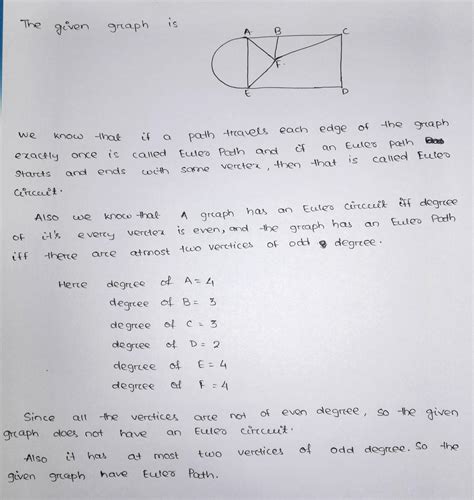 The given graph is
A B C
F.
E D
We know that if a path travels each edge of the graph
exactly once is called Euler Path and if an Euler path
starts and ends with same vertex, then that is called Euler
circuit.
Also we know that A graph has an Euler circuit iff degree
of it's every vertex is even, and the graph has an Euler Path
iff there are atmost two vertices of odd degree.
Here degree of A = 4
degree of B = 3
degree of C = 3
degree of D = 2
degree of E = 4
degree of F = 4
Since all the vertices are not of even degree, so the given
graph does not have an Euler circuit.
Also it has at most two vertices of odd degree. So the
given graph have Euler Path.